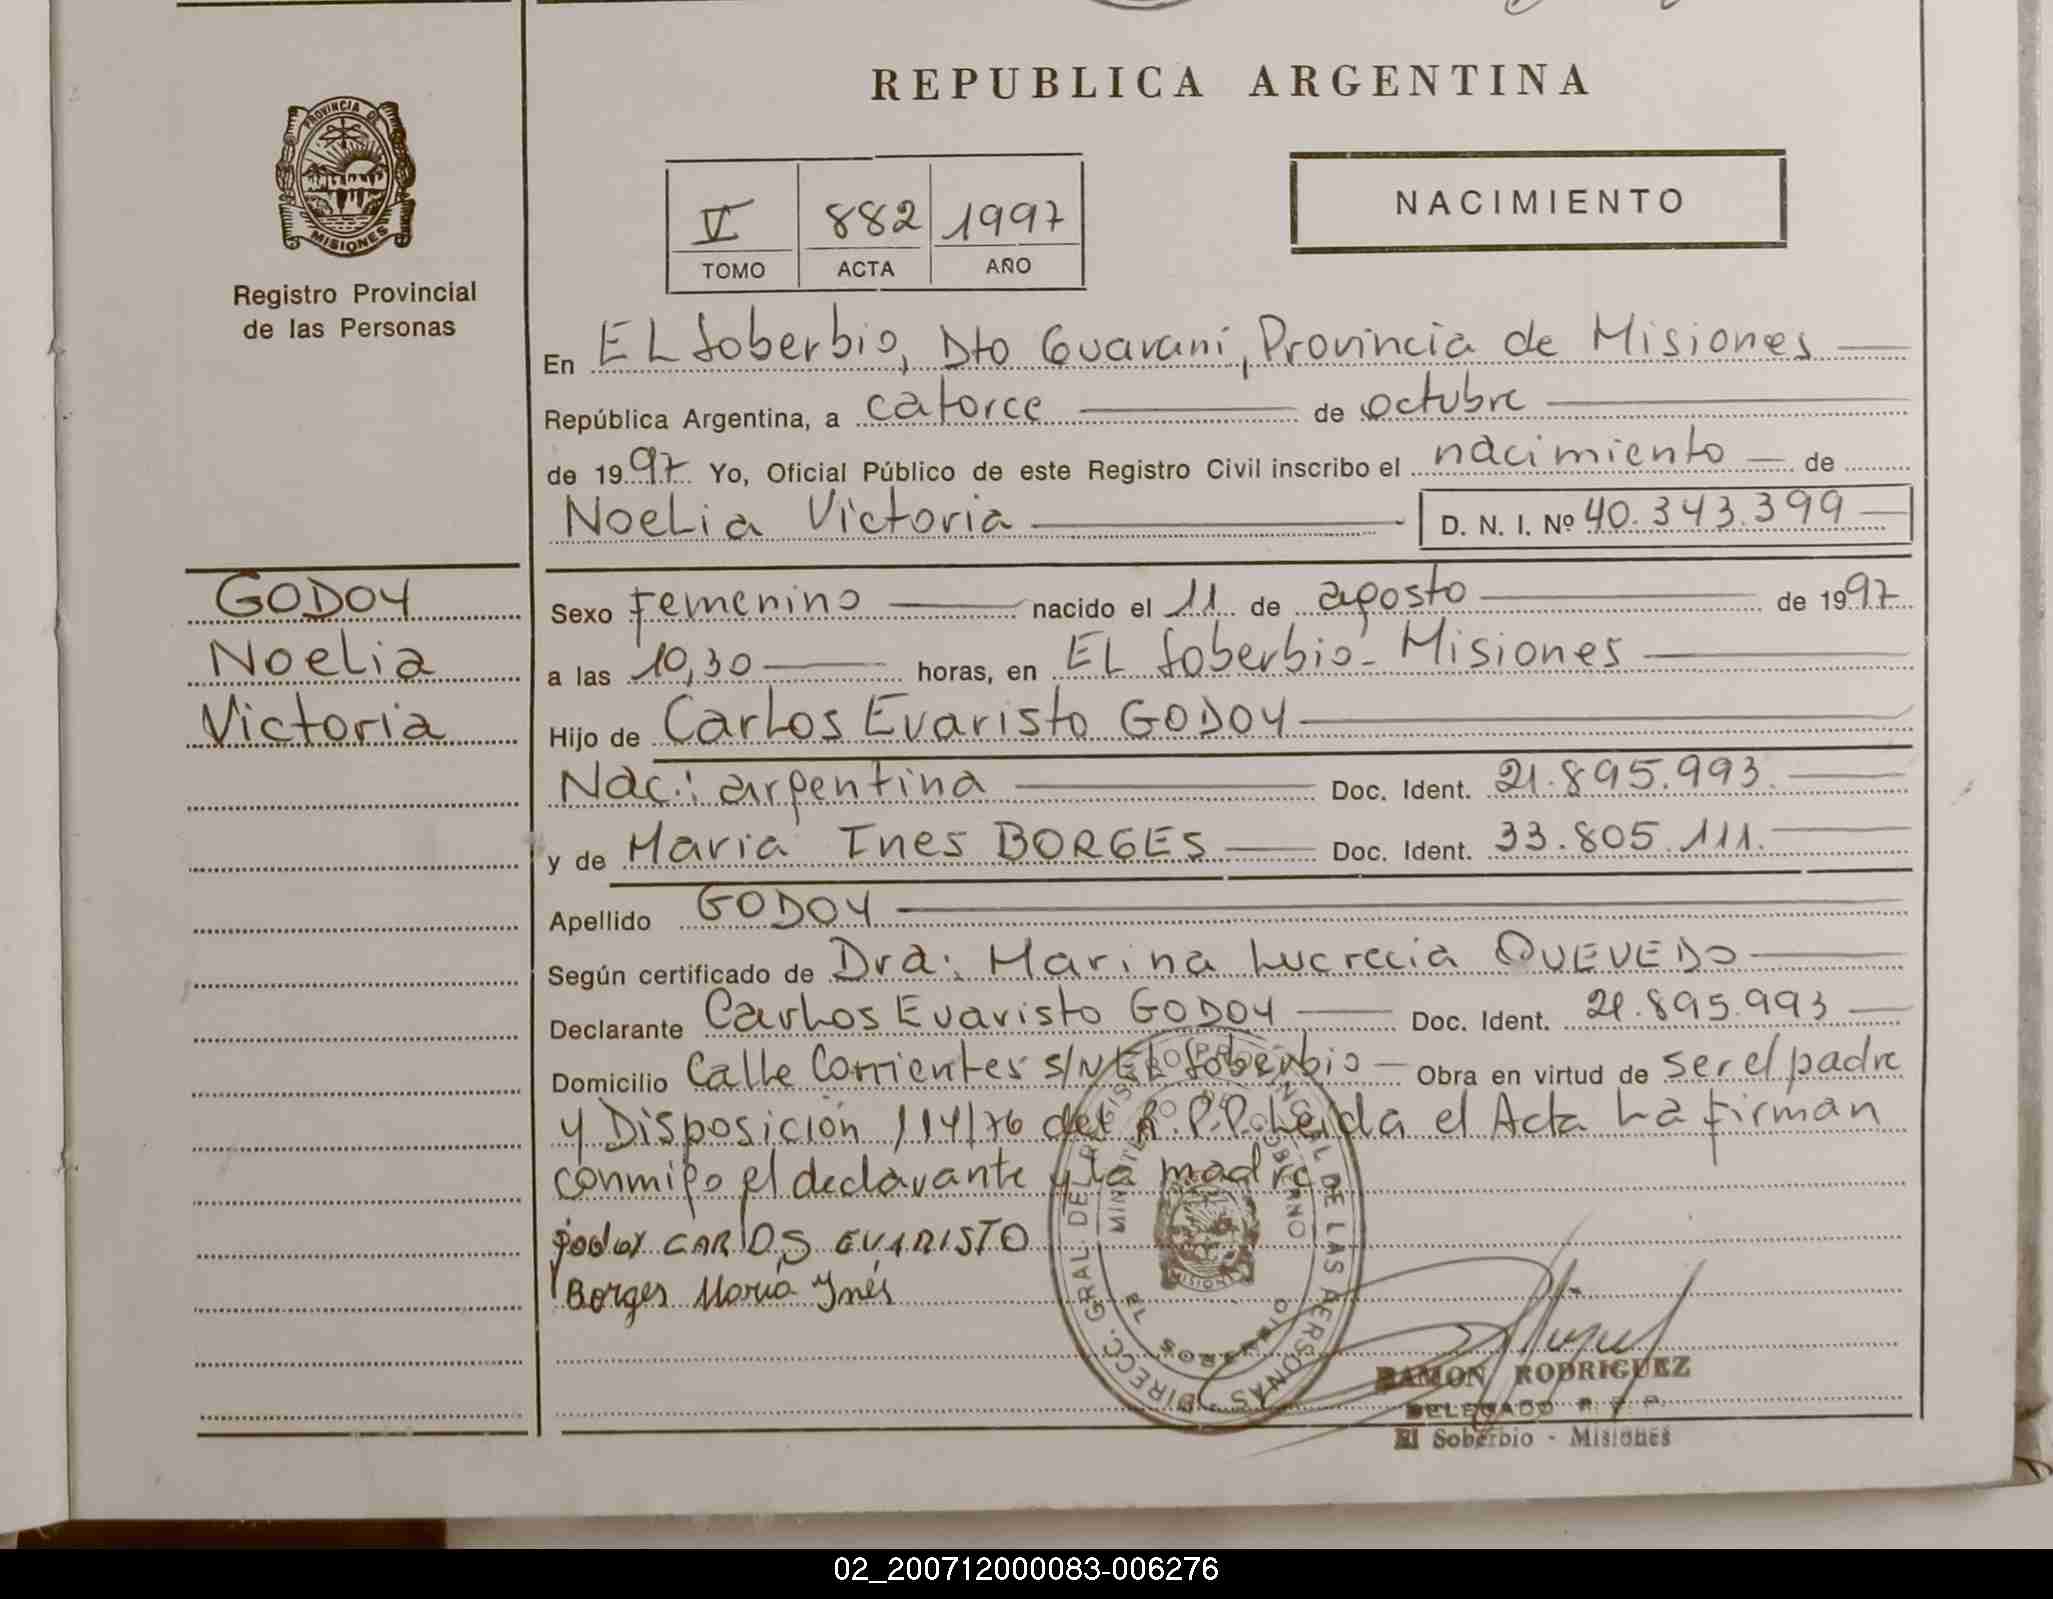 REPUBLICA ARGENTINA
PROVINCIA DE
MISIONES
Registro Provincial
de las Personas
V 882 1997
TOMO ACTA AÑO
NACIMIENTO
En EL Soberbio, Dto Guarani, Provincia de Misiones
República Argentina, a catorce de octubre
de 1997 Yo, Oficial Público de este Registro Civil inscribo el nacimiento de
Noelia Victoria D. N. I. Nº 40.343.399
GODOY
Noelia
Victoria
Sexo Femenino nacido el 11 de agosto de 1997
a las 10,30 horas, en EL Soberbio - Misiones
Hijo de Carlos Evaristo GODOY
Nac: argentina Doc. Ident. 21.895.993.
y de Maria Ines BORGES Doc. Ident. 33.805.111.
Apellido GODOY
Según certificado de Dra: Marina Lucrecia QUEVEDO
Declarante Carlos Evaristo GODOY Doc. Ident. 21.895.993
Domicilio Calle Corrientes S/N EL Soberbio Obra en virtud de ser el padre
y Disposición 114/76 del R.P.P. Leida el Acta La firman
conmigo el declarante y la madre
godoy CARLOS EVARISTO
Borges María Ynés
DIRECC. GRAL. DE REGISTRO PROVINCIAL DE LAS PERSONAS
MISIONES
RAMON RODRIGUEZ
DELEGADO R. P. P.
El Soberbio - Misiones
02_200712000083-006276